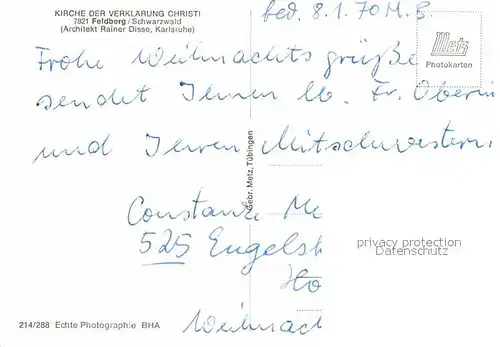 KIRCHE DER VERKLÄRUNG CHRISTI
7821 Feldberg / Schwarzwald
(Architekt Rainer Disse, Karlsruhe)
bed. 8.1.70 M.B.
Metz
Photokarten
Frohe Weihnachtsgrüße
sendet Ihnen lb. Fr. Oberin
und Ihren Mitschwestern,
Gebr. Metz, Tübingen
Constanze Me
525 Engelsk
privacy protection
Datenschutz
Ho
214/288 Echte Photographie BHA
Weihnac